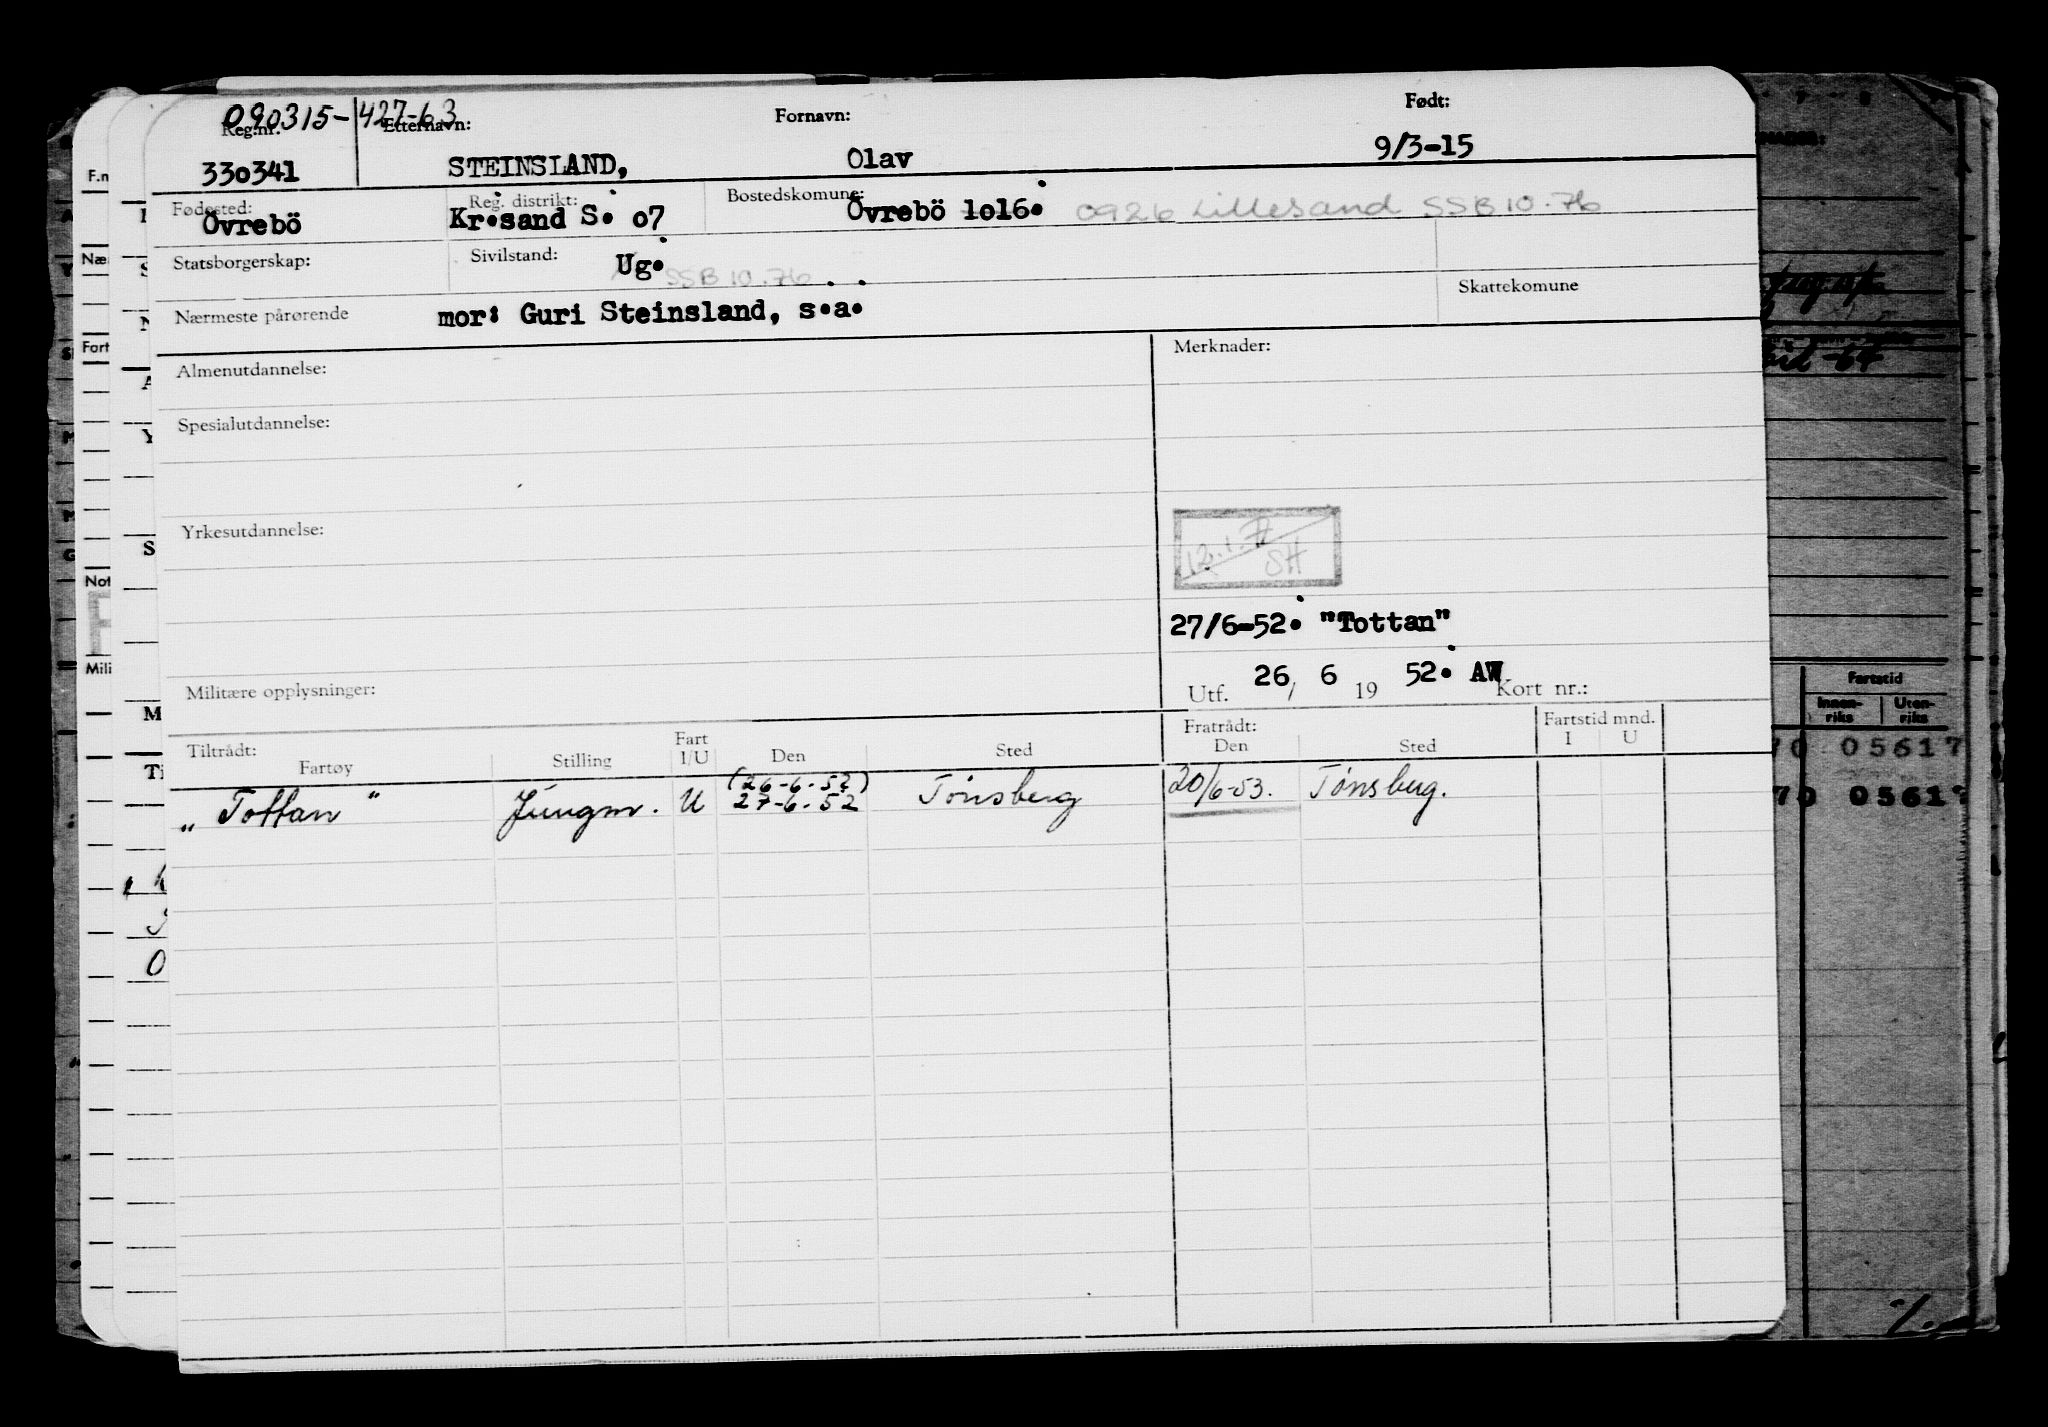 090315-427-63
Reg.nr. Etternavn: Fornavn: Født:
330341 STEINSLAND, Olav 9/3-15
Fødested: Reg. distrikt: Bostedskomune:
Övrebö Kr.sand S. o7 Övrebö 1o16. 0926 Lillesand SSB 10.76
Statsborgerskap: Sivilstand: Ug.
SSB 10.76
Nærmeste pårørende mor: Guri Steinsland, s.a. Skattekomune
Almenutdannelse: Merknader:
Spesialutdannelse:
Yrkesutdannelse:
12.1.77
SH
27/6-52. "Tottan"
Militære opplysninger: Utf. 26/ 6 19 52. AW Kort nr.:
Tiltrådt: Fratrådt: Fartstid mnd.
Fartøy Stilling Fart I/U Den Sted Den Sted I U
(26-6-52)
„Tottan" Jungm. U 27-6-52 Tönsberg 20/6-53. Tönsberg.
F.n
Næ
Fort
Not
Mili
Fartstid
Innen-riks Uten-riks
70 05617
70 0561